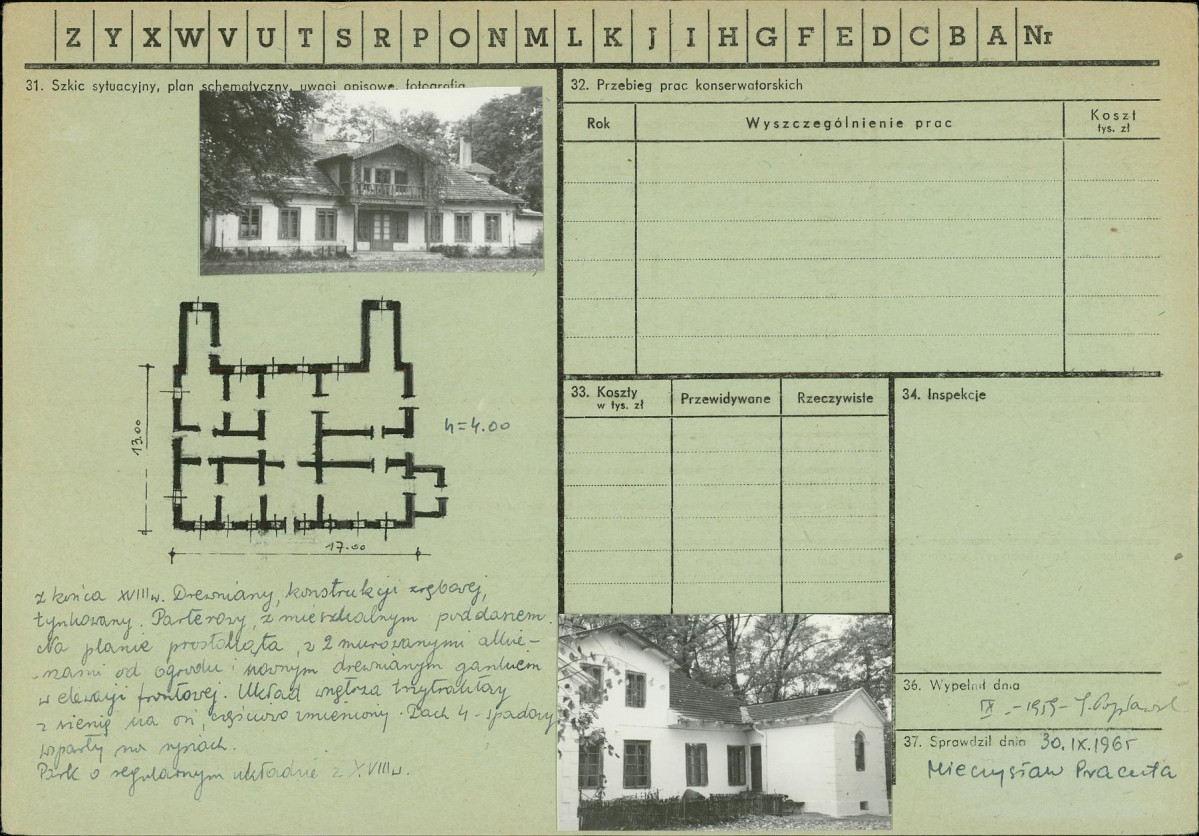 Z Y X W V U T S R P O N M L K J I H G F E D C B A Nr
31. Szkic sytuacyjny, plan schematyczny, uwagi opisowe, fotografia
32. Przebieg prac konserwatorskich
Rok
Wyszczególnienie prac
Koszt
tys. zł
33. Koszty
w tys. zł
Przewidywane
Rzeczywiste
34. Inspekcje
13.00
h=4.00
17.00
z końca XVIII w. Drewniany, konstrukcji zrębowej,
tynkowany. Parterowy, z mieszkalnym poddaszem.
Na planie prostokąta, z 2 murowanymi alkie-
-rzami od ogrodu i nowym drewnianym gankiem
w elewacji frontowej. Układ wnętrza trzytraktowy
z sienią na osi, częściowo zmieniony. Dach 4-spadowy
wsparty na
Park o regularnym układzie z XVIII w.
36. Wypełnił dnia
IX.-1959-
37. Sprawdził dnia 30.IX.1965
Mieczysław Pracuta